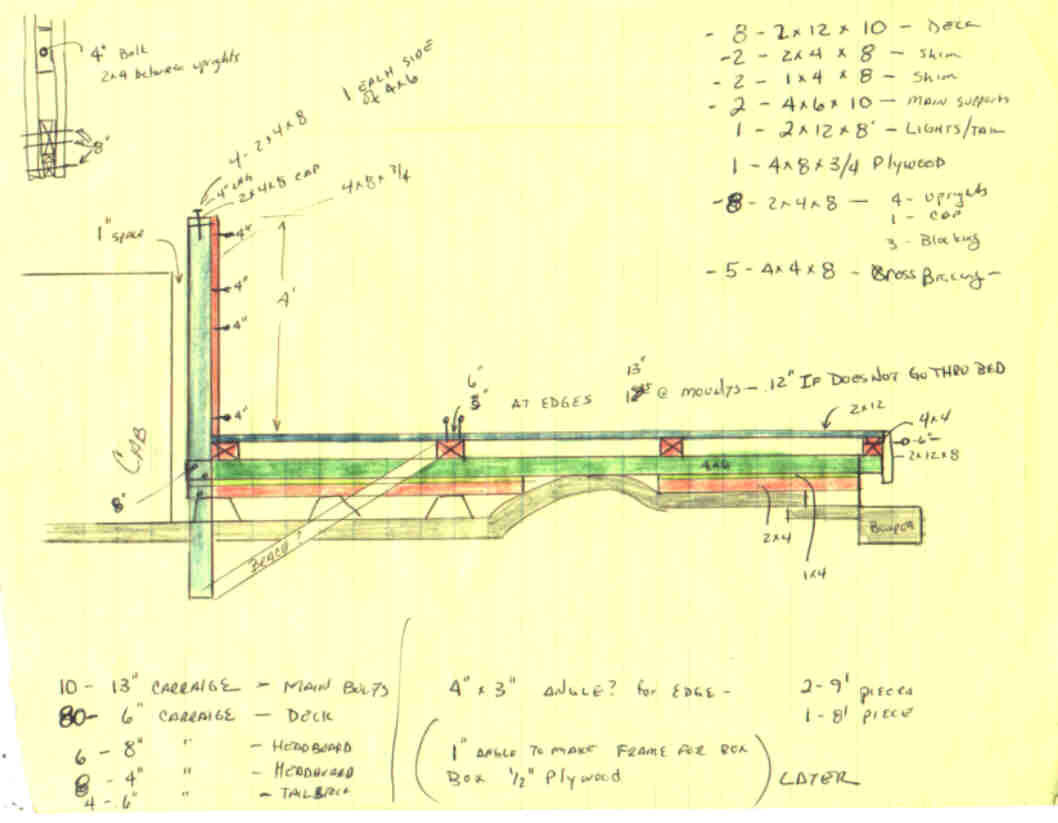 4" Bolt
2x4 between uprights
8"
1 EACH SIDE
of 4x6
4-2x4x8
4" LAG
2x4x8 CAP
4x8x3/4
1" space
4"
4"
4"
4"
4'
CAB
8"
- 8 - 2x12x10 - Deck
- 2 - 2x4x8 - Shim
- 2 - 1x4x8 - Shim
- 2 - 4x6x10 - MAIN Supports
1 - 2x12x8' - LIGHTS/TAIL
1 - 4x8x3/4 Plywood
- 8 - 2x4x8 - 4 - uprights
1 - CAP
3 - Blocking
- 5 - 4x4x8 - Cross Bracing -
6"
AT EDGES
13"
@ mounts - 12" IF DOES NOT GO THRU BED
2x12
4x4
6"
2x12x8
4x6
BRACE?
2x4
1x4
Bumper
10 - 13" CARRAIGE - MAIN BOLTS
80 - 6" CARRAIGE - DECK
6 - 8" " - HEADBOARD
8 - 4" " - HEADBOARD
4 - 6" " -
4" x 3" ANGLE? for EDGE -
2-9' pieces
1-8' piece
1" ANGLE TO MAKE FRAME FOR BOX
Box 1/2" Plywood
LATER